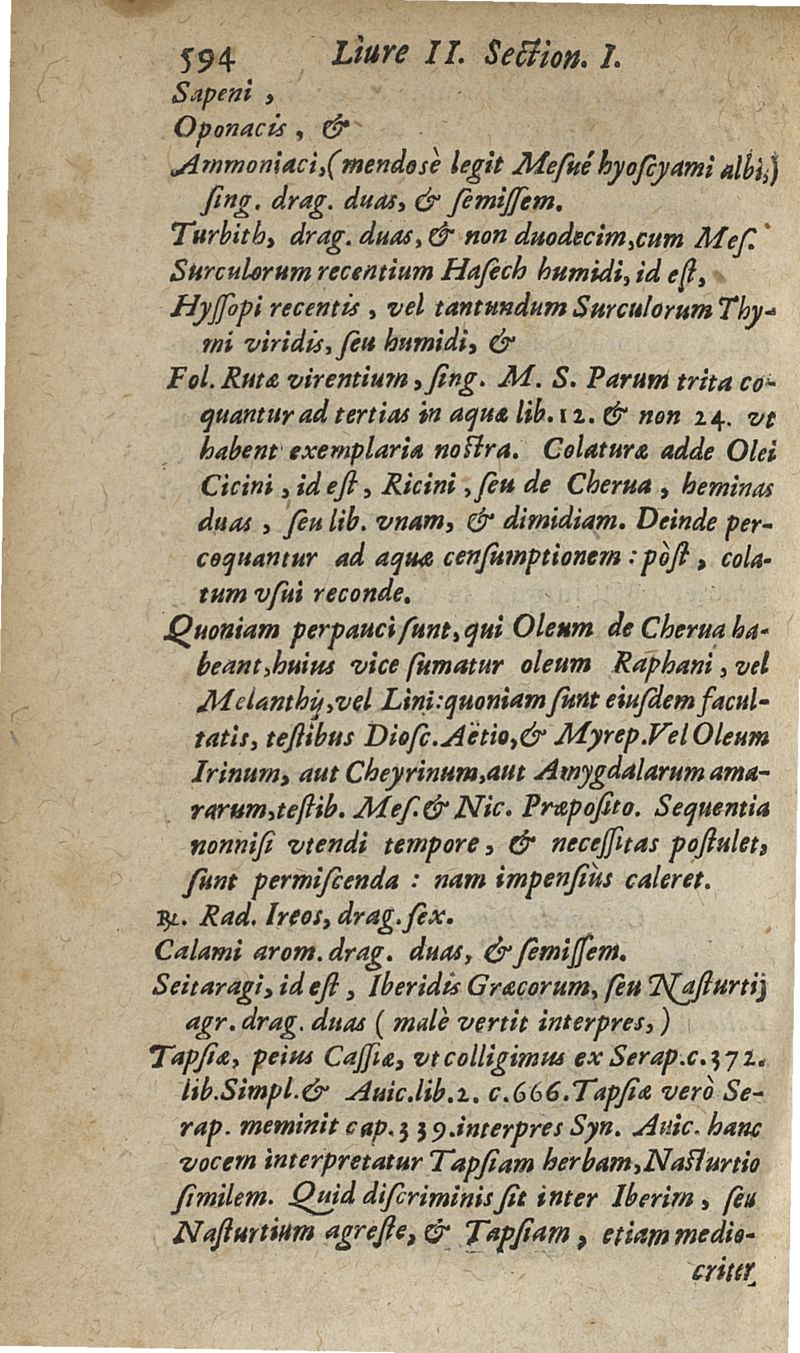 594 Liure II. Section. I.
Sapeni ,
Oponacis , &
Ammoniaci,(mendosè legit Mesué hyoscyami albi,)
sing. drag. duas, & semissem.
Turbith, drag. duas, & non duodecim,cum Mes.
Surculorum recentium Hasech humidi, id est,
Hyssopi recentis , vel tantundum Surculorum Thy-
mi viridis, seu humidi, &
Fol. Rutæ virentium, sing. M. S. Parum trita co-
quantur ad tertias in aquæ lib.12. & non 24. vt
habent exemplaria nostra. Colaturæ adde Olei
Cicini , id est , Ricini , seu de Cherua , heminas
duas , seu lib. vnam, & dimidiam. Deinde per-
coquantur ad aquæ censumptionem : pòst , cola-
tum vsui reconde.
Quoniam perpauci sunt, qui Oleum de Cherua ha-
beant,huius vice sumatur oleum Raphani , vel
Melanthij,vel Lini:quoniam sunt eiusdem facul-
tatis, testibus Diosc.Aëtio,& Myrep.Vel Oleum
Irinum, aut Cheyrinum,aut Amygdalarum ama-
rarum,testib. Mes.& Nic. Præposito. Sequentia
nonnisi vtendi tempore , & necessitas postulet,
sunt permiscenda : nam impensiùs caleret.
℞. Rad. Ireos, drag. sex.
Calami arom. drag. duas, & semissem.
Seitaragi, id est , Iberidis Græcorum, seu Nasturtij
agr. drag. duas ( malè vertit interpres, )
Tapsiæ, peius Cassiæ, vt colligimus ex Serap.c.372.
lib.Simpl.& Auic.lib.2. c.666.Tapsiæ verò Se-
rap. meminit cap.339.interpres Syn. Auic. hanc
vocem interpretatur Tapsiam herbam,Nasturtio
similem. Quid discriminis sit inter Iberim , seu
Nasturtium agreste, & Tapsiam , etiam medio-
criter